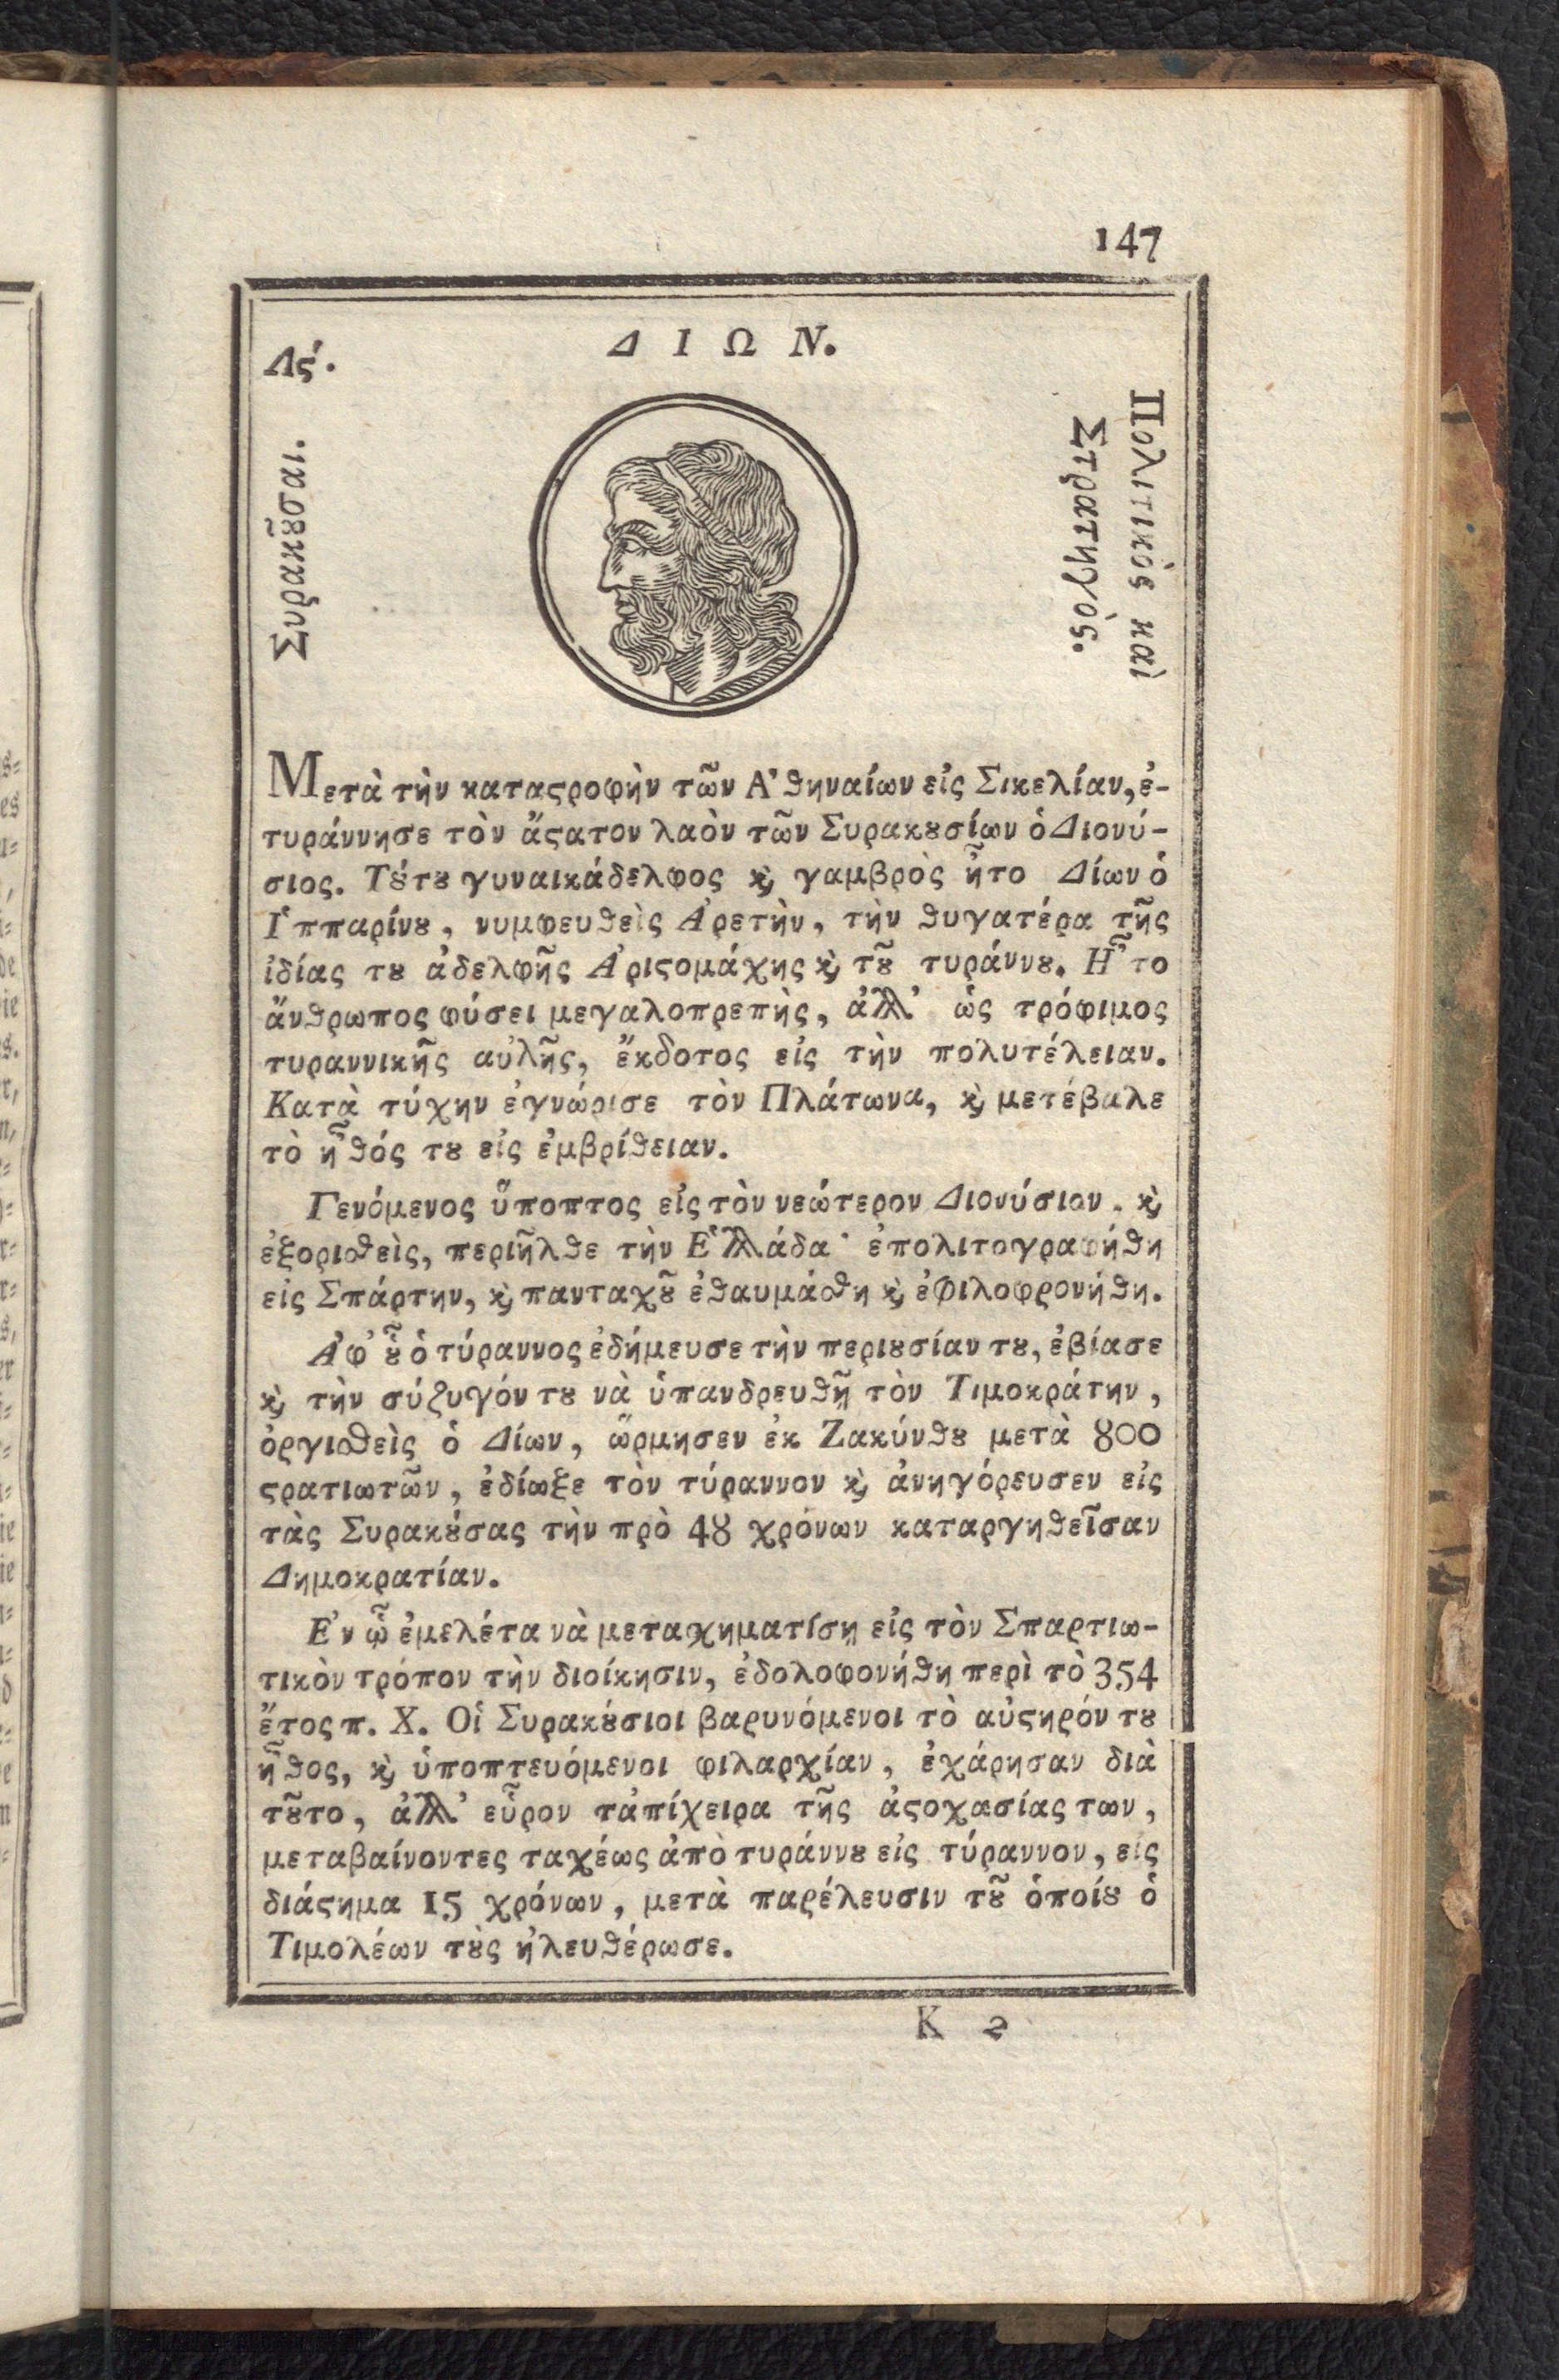 147
ΔΙΩΝ.
Λϛ΄.
Συρακȣ͂σαι.
Πολιτικὸς καὶ
Στρατηγὸς.
Μετὰ τὴν καταϛροφὴν τῶν Ἀθηναίων εἰς Σικελίαν, ἐ-
τυράννησε τὸν ἄϛατον λαὸν τῶν Συρακȣσίων ὁ Διονύ-
σιος. Τȣ́τȣ γυναικάδελφος ϗ̀ γαμβρὸς ἦτο Δίων ὁ
Ἱππαρίνȣ, νυμφευθεὶς Ἀρετὴν, τὴν θυγατέρα τῆς
ἰδίας τȣ ἀδελφῆς Ἀριϛομάχης ϗ̀ τȣ͂ τυράννȣ. Ἦτο
ἄνθρωπος φύσει μεγαλοπρεπὴς, ἀλλ' ὡς τρόφιμος
τυραννικῆς αὐλῆς, ἔκδοτος εἰς τὴν πολυτέλειαν.
Κατὰ τύχην ἐγνώρισε τὸν Πλάτωνα, ϗ̀ μετέβαλε
τὸ ἦθός τȣ εἰς ἐμβρίθειαν.
Γενόμενος ὕποπτος εἰς τὸν νεώτερον Διονύσιον, ϗ̀
ἐξορισθεὶς, περιῆλθε τὴν Ἑλλάδα· ἐπολιτογραφήθη
εἰς Σπάρτην, ϗ̀ πανταχȣ͂ ἐθαυμάσθη ϗ̀ ἐφιλοφρονήθη.
Ἀφ' ȣ̓͂ ὁ τύραννος ἐδήμευσε τὴν περιȣσίαν τȣ, ἐβίασε
ϗ̀ τὴν σύζυγόν τȣ νὰ ὑπανδρευθῇ τὸν Τιμοκράτην,
ὀργισθεὶς ὁ Δίων, ὥρμησεν ἐκ Ζακύνθȣ μετὰ 800
ϛρατιωτῶν, ἐδίωξε τὸν τύραννον ϗ̀ ἀνηγόρευσεν εἰς
τὰς Συρακȣ́σας τὴν πρὸ 48 χρόνων καταργηθεῖσαν
Δημοκρατίαν.
Ἐν ᾧ ἐμελέτα νὰ μετασχηματίσῃ εἰς τὸν Σπαρτιω-
τικὸν τρόπον τὴν διοίκησιν, ἐδολοφονήθη περὶ τὸ 354
ἔτος π. Χ. Οἱ Συρακȣ́σιοι βαρυνόμενοι τὸ αὐϛηρόν τȣ
ἦθος, ϗ̀ ὑποπτευόμενοι φιλαρχίαν, ἐχάρησαν διὰ
τȣ͂το, ἀλλ' εὗρον τἀπίχειρα τῆς ἀϛοχασίας των,
μεταβαίνοντες ταχέως ἀπὸ τυράννȣ εἰς τύραννον, εἰς
διάϛημα 15 χρόνων, μετὰ παρέλευσιν τȣ͂ ὁποίȣ ὁ
Τιμολέων τȣ̀ς ἠλευθέρωσε.
Κ 2